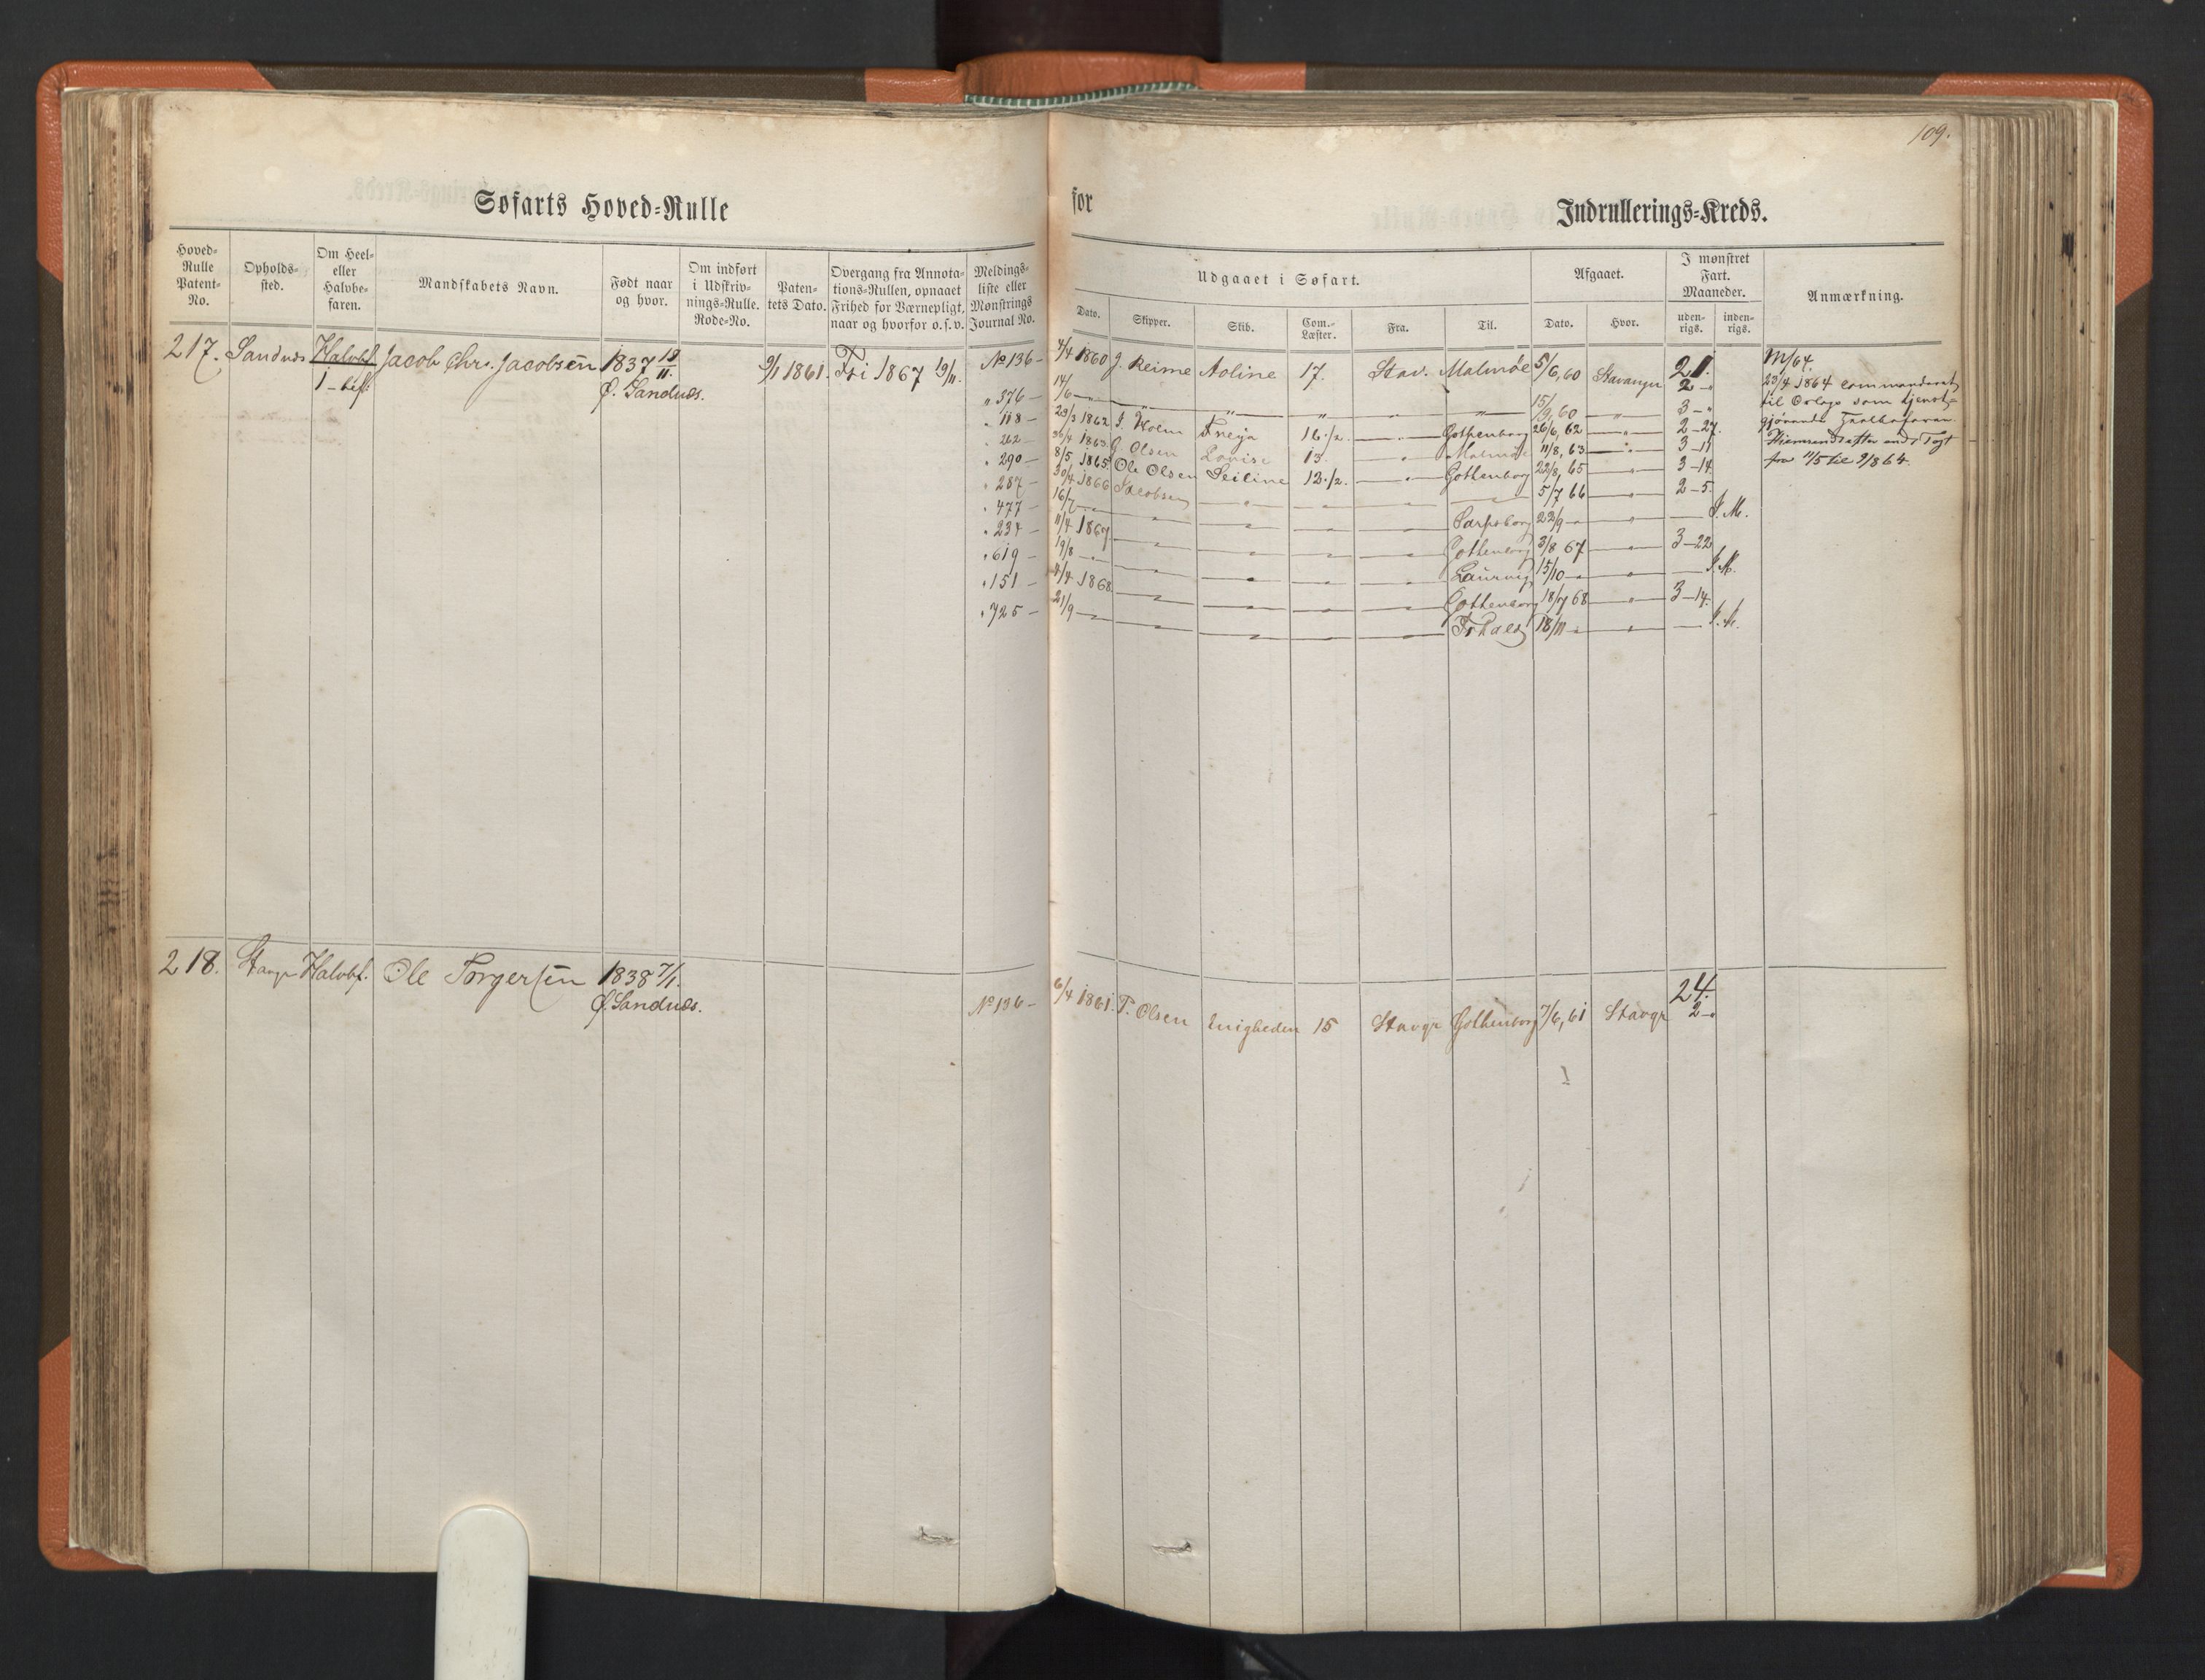 109.
Søfarts Hoved-Rulle for Indrullerings-Kreds.
Hoved-Rulle Patent-No. Opholds-sted. Om Heel- eller Halvbe-faren. Mandskabets Navn. Født naar og hvor. Om indført i Udskriv-nings-Rulle. Rode-No. Paten-tets Dato. Overgang fra Annota-tions-Rullen, opnaaet Frihed for Værnepligt, naar og hvorfor o. s. v. Meldings-liste eller Mønstrings Journal No.
Udgaaet i Søfart. Afgaaet. I mønstret Fart. Maaneder. Anmærkning.
Dato. Skipper. Skib. Com.-Læster. Fra. Til. Dato. Hvor. uden-rigs. inden-rigs.
217. Sandnæs Halvbf. Jacob Chr. Jacobsen 1837 18/11. 9/1 1861. Fri 1867 19/11. No 136 — 4/4 1860 J. Reime Aoline 17. Stav. Malmöe 5/6, 60 Stavanger 21.
1 - bef. Ø. Sandnæs. 2 - "
M/64.
" 376 — 14/6 — " — " — " — " — " — 15/9, 60 — " — 3 - "
23/4 1864 commanderet
" 118 — 29/3 1862. Holm Freya 16 1/2. — " — Gothenborg 26/6, 62 — " — 2 - 27.
til Orlogs som tjenst-
" 262 — 1863. Olsen Louise 13. — " — Malmöe 11/8, 63 — " — 3 - 11
gjørende
" 290 — 8/5 1865. Ole Olsen Seiline 12 1/2. — " — Gothenborg 22/8, 65 — " — 3 - 14.
Hjemsendt efter endt Togt
" 287 — 30/4 1866 Jacobsen — " — " — " — " — 5/7 66 — " — 2 - 5.
fra 11/5 til 9/8 64.
" 477 — 16/7 — " — " — " — " — Sarpsborg 22/9 — " — " — I. M.
" 234 — 11/4 1867 — " — " — " — " — Gothenborg 3/8 67 — " — 3 - 22
" 619 — 19/8 — " — " — " — " — " — Laurvig 15/10 — " — " — I. M.
" 151 — 4/4 1868. — " — " — " — " — Gothenborg 18/7 68 — " — 3 - 14.
" 725 — 21/9 — " — " — " — " — " — Frhald 18/11 — " — " — I. M.
218. Stavgr Halvbf. Ole Torgersen 1838 7/1. 24.
Ø. Sandnæs. No 136 — 6/4 1861. P. Olsen Enigheden 15 Stavgr Gothenborg 7/6, 61 Stavgr 2 - "